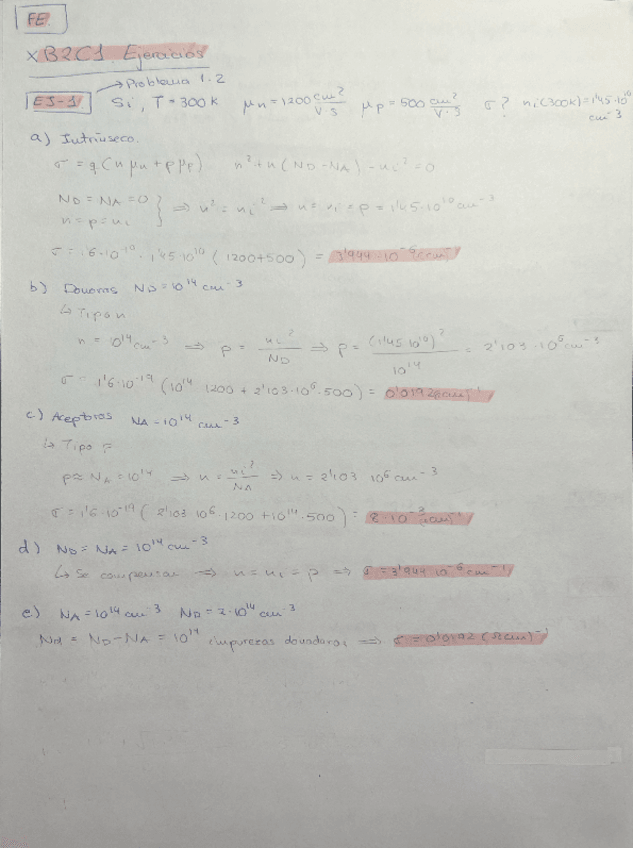 FE.
x B2C1. Ejercicios
→ Problema 1.2
EJ-1 Si, T = 300 K μn = 1200 cm²/V·s μp = 500 cm²/V·s σ? ni(300k) = 1'45·10¹⁰ cm⁻³
a) Intrínseco.
σ = q(n μn + p μp) n² + n(ND - NA) - ni² = 0
ND = NA = 0
n = p = ni } ⇒ n² = ni² ⇒ n = ni = p = 1'45·10¹⁰ cm⁻³
σ = 1'6·10⁻¹⁹ · 1'45·10¹⁰ (1200+500) = 3'944·10⁻⁶ (Ωcm)⁻¹
b) Donoras ND = 10¹⁴ cm⁻³
↳ Tipo n
n = 10¹⁴ cm⁻³ ⇒ p = ni²/ND ⇒ p = (1'45 10¹⁰)²/10¹⁴ = 2'103·10⁶ cm⁻³
σ = 1'6·10⁻¹⁹ (10¹⁴ 1200 + 2'103·10⁶·500) = 0'0192 (Ωcm)⁻¹
c) Aceptoras NA = 10¹⁴ cm⁻³
↳ Tipo P
p ≈ NA = 10¹⁴ ⇒ n = ni²/NA ⇒ n = 2'103 10⁶ cm⁻³
σ = 1'6·10⁻¹⁹ (2'103 10⁶·1200 + 10¹⁴·500) = 8·10⁻³ (Ωcm)⁻¹
d) ND = NA = 10¹⁴ cm⁻³
↳ Se compensan ⇒ n = ni = p ⇒ σ = 3'944·10⁻⁶ cm⁻¹
e) NA = 10¹⁴ cm⁻³ ND = 2·10¹⁴ cm⁻³
Nd = ND - NA = 10¹⁴ impurezas donadoras ⇒ σ = 0'0192 (Ωcm)⁻¹